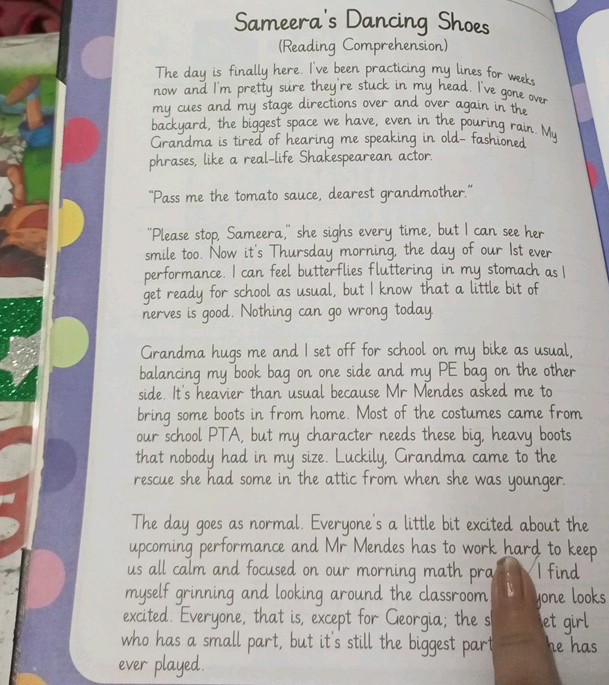 Sameera's Dancing Shoes
(Reading Comprehension)
The day is finally here. I've been practicing my lines for weeks
now and I'm pretty sure they're stuck in my head. I've gone over
my cues and my stage directions over and over again in the
backyard, the biggest space we have, even in the pouring rain. My
Grandma is tired of hearing me speaking in old- fashioned
phrases, like a real-life Shakespearean actor.
"Pass me the tomato sauce, dearest grandmother."
"Please stop, Sameera," she sighs every time, but I can see her
smile too. Now it's Thursday morning, the day of our 1st ever
performance. I can feel butterflies fluttering in my stomach as I
get ready for school as usual, but I know that a little bit of
nerves is good. Nothing can go wrong today.
Grandma hugs me and I set off for school on my bike as usual,
balancing my book bag on one side and my PE bag on the other
side. It's heavier than usual because Mr Mendes asked me to
bring some boots in from home. Most of the costumes came from
our school PTA, but my character needs these big, heavy boots
that nobody had in my size. Luckily, Grandma came to the
rescue she had some in the attic from when she was younger.
The day goes as normal. Everyone's a little bit excited about the
upcoming performance and Mr Mendes has to work hard to keep
us all calm and focused on our morning math I find
myself grinning and looking around the classroom looks
excited. Everyone, that is, except for Georgia; the girl
who has a small part, but it's still the biggest part has
ever played.